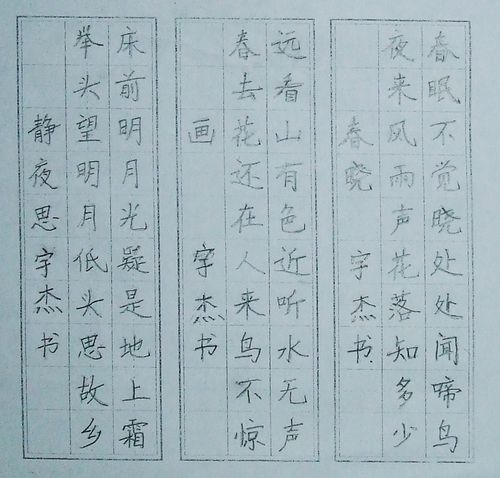 春眠不觉晓处处闻啼鸟
夜来风雨声花落知多少
春晓 字杰书
远看山有色近听水无声
春去花还在人来鸟不惊
画 字杰书
床前明月光疑是地上霜
举头望明月低头思故乡
静夜思字杰书